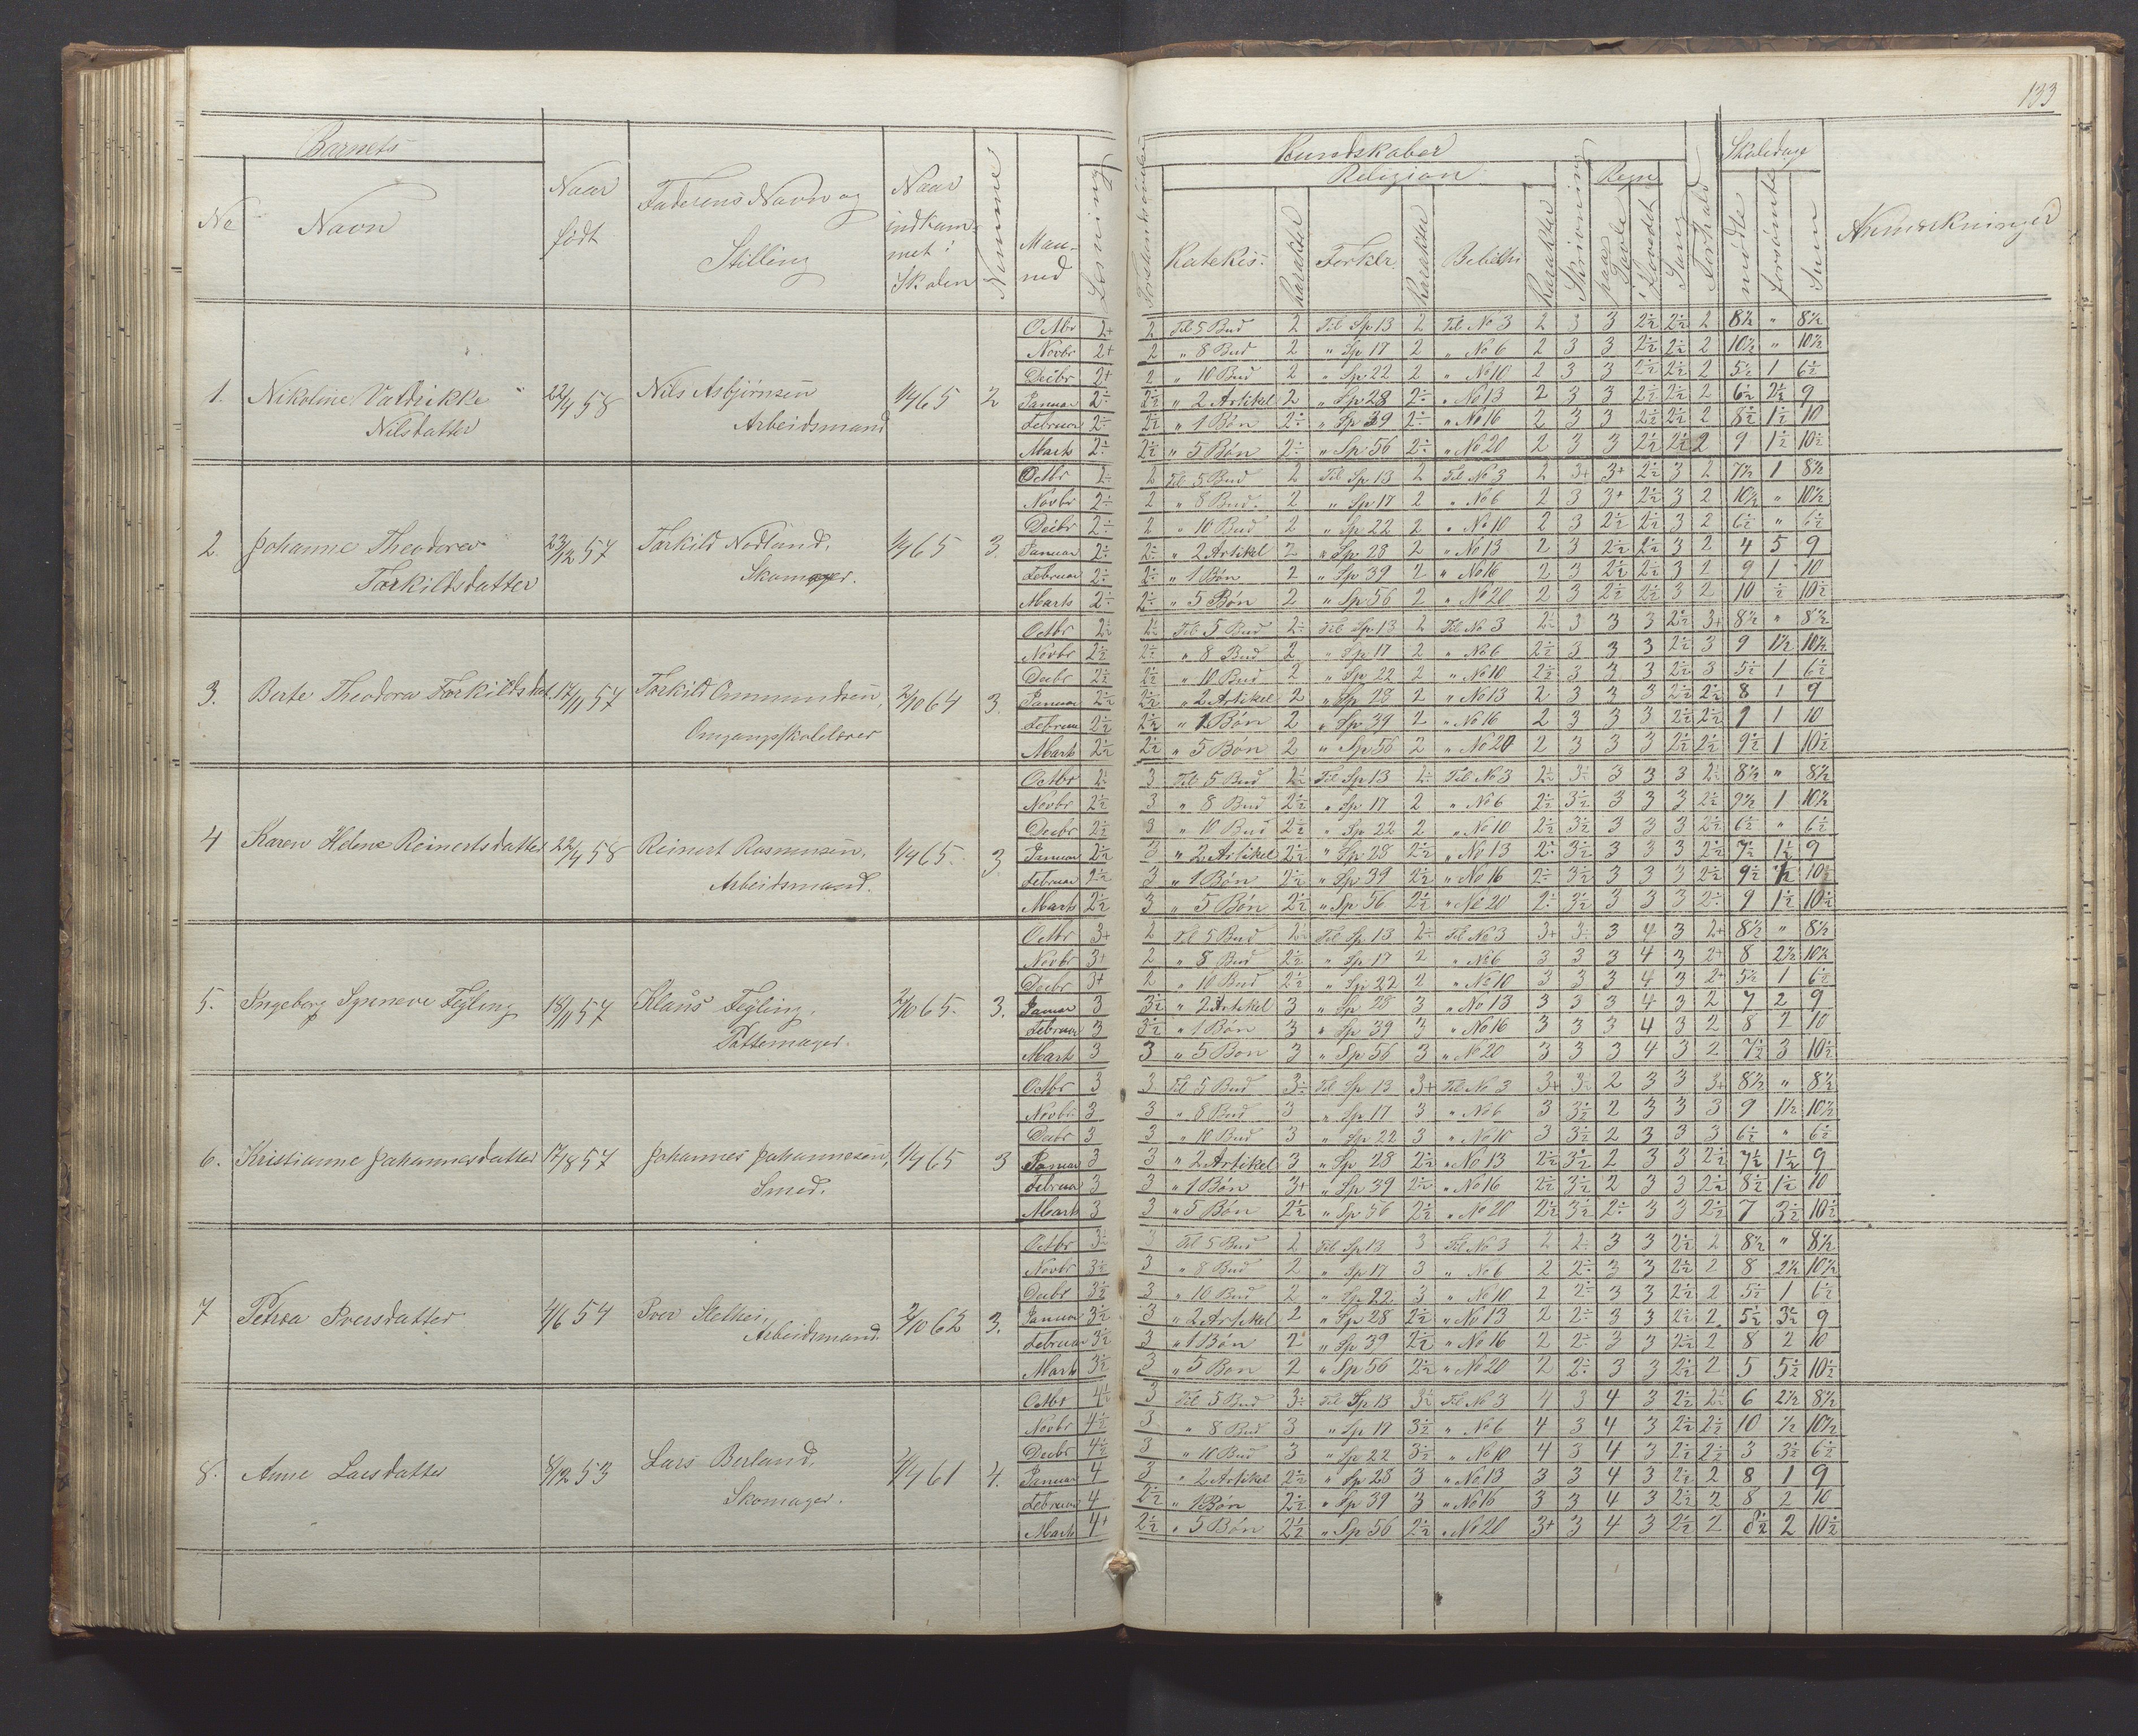 133
Barnets
No
Navn
Naar født
Faderens Navn og Stilling
Naar indkommet i Skolen
Nemme
Maaned
Læsning
Forstandsøvelse
Kundskaber
Religion
Katekis:
Karakter
Forklr.
Karakter
Bibelhi
Karakter
Skrivning
Regn.
paa Tavle
i Hovedet
Sang
Forhold
Skoledage
mødte
forsömte
Sum
Anmærkninger
1. Nikoline Valdrikke Nilsdatter 22/4 58 Nils Asbjørnsen Arbeidsmand 1/4 65 2
Octbr 2+ 2 Til 5 Bud 2 Til Sp 13 2 Til No 3 2 3 3 2½ 2½ 2 8½ " 8½
Novbr 2+ 2 " 8 Bud 2 " Sp 17 2 " No 6 2 3 3 2½ 2½ 2 10½ " 10½
Decbr 2+ 2 " 10 Bud 2 " Sp 22 2 " No 10 2 3 3 2½ 2½ 2 5½ 1 6½
Januar 2÷ 2½ " 2 Artikel 2 " Sp 28 2÷ " No 13 2 3 3 2½ 2½ 2 6½ 2½ 9
Februar 2÷ 2½ " 1 Bön 2÷ " Sp 39 2÷ " No 16 2 3 3 2½ 2½ 2 8½ 1½ 10
Marts 2÷ 2½ " 5 Bön 2÷ " Sp 56 2÷ " No 20 2 3 3 2½ 2½ 2 9 1½ 10½
2. Johanne Theodora Torkildsdatter 23/12 57 Torkild Nodland, Skomager. 1/4 65 3.
Octbr 2÷ 2 Til 5 Bud 2 Til Sp 13 2 Til No 3 2 3+ 3+ 2½ 3 2 7½ 1 8½
Novbr 2÷ 2 " 8 Bud. 2 " Sp 17 2 " No 6 2 3 3+ 2½ 3 2 10½ " 10½
Decbr 2÷ 2 " 10 Bud 2 " Sp 22 2 " No 10 2 3 2½ 2½ 3 2 6½ " 6½
Januar 2÷ 2÷ " 2 Artikel 2 " Sp 28 2 " No 13 2 3 2½ 2½ 3 2 4 5 9
Februar 2÷ 2÷ " 1 Bön 2 " Sp 39 2 " No 16 2 3 2½ 2½ 3 2 9 1 10
Marts 2÷ 2÷ " 5 Bön 2 " Sp 56 2 " No 20 2 3 2½ 2½ 3 2 10 ½ 10½
3. Berte Theodora Torkildsdat. 17/11 57 Torkild Ommundsen, Omgangsskolelærer 2/10 64 3.
Octbr 2½ 2½ Til 5 Bud 2÷ Til Sp 13 2 Til No 3 2½ 3 3 3 2½ 3+ 8½ " 8½
Novbr 2½ 2½ " 8 Bud 2 " Sp 17 2 " No 6 2½ 3 3 3 2½ 3 9 1½ 10½
Decbr 2½ 2½ " 10 Bud 2 " Sp 22 2 " No 10 2½ 3 3 3 2½ 3 5½ 1 6½
Januar 2½ 2½ " 2 Artikel 2 " Sp 28 2 " No 13 2 3 3 3 2½ 2½ 8 1 9
Februar 2½ 2½ " 1 Bön 2 " Sp 39 2 " No 16 2 3 3 3 2½ 2½ 9 1 10
Marts 2½ 2½ " 5 Bön 2 " Sp 56 2 " No 20 2 3 3 3 2½ 2½ 9½ 1 10½
4 Karen Helene Reinertsdatter 22/4 58 Reinert Rasmussen, Arbeidsmand. 1/4 65. 3.
Octbr 2½ 3 Til 5 Bud 2½ Til Sp 13 2÷ Til No 3 2½ 3÷ 3 3 3 2½ 8½ " 8½
Novbr 2½ 3 " 8 Bud 2½ " Sp 17 2 " No 6 2½ 3½ 3 3 3 2½ 9½ 1 10½
Decbr 2½ 3 " 10 Bud 2½ " Sp 22 2 " No 10 2½ 3½ 3 3 3 2½ 6½ " 6½
Januar 2½ 3 " 2 Artikel 2½ " Sp 28 2½ " No 13 2÷ 3½ 3 3 3 2½ 7½ 1½ 9
Februar 2½ 3 " 1 Bön 2½ " Sp 39 2½ " No 16 2÷ 3½ 3 3 3 2½ 9½ ½ 10
Marts 2½ 3 " 5 Bön 2½ " Sp 56 2½ " No 20 2÷ 3½ 3 3 3 2÷ 9 1½ 10½
5. Ingeborg Synneve Fegling 18/11 57 Klaus Fegling, Pottemager. 2/10 65. 3.
Octbr 3+ 2 Til 5 Bud 2½ Til Sp 13 2÷ Til No 3 3+ 3÷ 3 4 3 2+ 8½ " 8½
Novbr 3+ 2 " 8 Bud 2½ " Sp 17 2 " No 6 3 3 3 4 3 2+ 8 2½ 10½
Decbr 3+ 2 " 10 Bud 2½ " Sp 22 2 " No 10 3 3 3 4 3 2+ 5½ 1 6½
Januar 3 3½ " 2 Artikel 3 " Sp 28 3 " No 13 3 3 3 4 3 2 7 2 9
Februar 3 3½ " 1 Bön 3 " Sp 39 3 " No 16 3 3 3 4 3 2 8 2 10
Marts 3 3 " 5 Bön 3 " Sp 56 3 " No 20 3 3 3 4 3 2 7½ 3 10½
6. Kristianne Johannesdatter 17/8 57 Johannes Johannesen, Smed. 1/4 65 3
Octbr 3 3 Til 5 Bud 3÷ Til Sp 13 3+ Til No 3 3+ 3½ 2 3 3 3+ 8½ " 8½
Novbr 3 3 " 8 Bud 3 " Sp 17 3 " No 6 3 3½ 2 3 3 3 9 1½ 10½
Decbr 3 3 " 10 Bud 3 " Sp 22 3 " No 10 3 3½ 2 3 3 3 6½ " 6½
Januar 3 3 " 2 Artikel 3 " Sp 28 2½ " No 13 2½ 3½ 2 3 3 2½ 7½ 1½ 9
Februar 3 3 " 1 Bön 3+ " Sp 39 2½ " No 16 2½ 3½ 2 3 3 2½ 8½ 1½ 10
Marts 3 3 " 5 Bön 2½ " Sp 56 2½ " No 20 2½ 3½ 2÷ 3 3 2½ 7 3½ 10½
7 Petrea Iversdatter 4/6 54 Iver Stelkei, Arbeidsmand 2/10 62 3.
Octbr 3½ 3 Til 5 Bud 2 Til Sp 13 3 Til No 3 2 2÷ 3 3 2½ 2 8½ " 8½
Novbr 3½ 3 " 8 Bud 2 " Sp 17 3 " No 6 2 2÷ 3 3 2½ 2 8 2½ 10½
Decbr 3½ 3 " 10 Bud 2 " Sp 22 3 " No 10 2 2÷ 3 3 2½ 2 5½ 1 6½
Januar 3½ 3 " 2 Artikel 2 " Sp 28 2½ " No 13 2 2÷ 3 3 2½ 2 5½ 3½ 9
Februar 3½ 3 " 1 Bön 2 " Sp 39 2½ " No 16 2 2÷ 3 3 2½ 2 8 2 10
Marts 3½ 3 " 5 Bön 2 " Sp 56 2½ " No 20 2 2÷ 3 3 2½ 2 5 5½ 10½
8. Anne Larsdatter 8/12 53 Lars Berland, Skomager. 1/4 61 4.
Octbr 4½ 3 Til 5 Bud 3÷ Til Sp 13 3½ Til No 3 4 3 4 3 2½ 2½ 6 2½ 8½
Novbr 4½ 3 " 8 Bud 3 " Sp 17 3½ " No 6 4 3 4 3 2½ 2½ 10 ½ 10½
Decbr 4½ 3 " 10 Bud 3 " Sp 22 3½ " No 10 4 3 4 3 2½ 2½ 3 3½ 6½
Januar 4 3 " 2 Artikel 2½ " Sp 28 3 " No 13 3 3 4 3 2½ 2 8 1 9
Februar 4 2½ " 1 Bön 2½ " Sp 39 3 " No 16 3 3 4 3 2½ 2 8 2 10
Marts 4+ 2½ " 5 Bön 2½ " Sp 56 2½ " No 20 3+ 3 4 3 2½ 2 8½ 2 10½